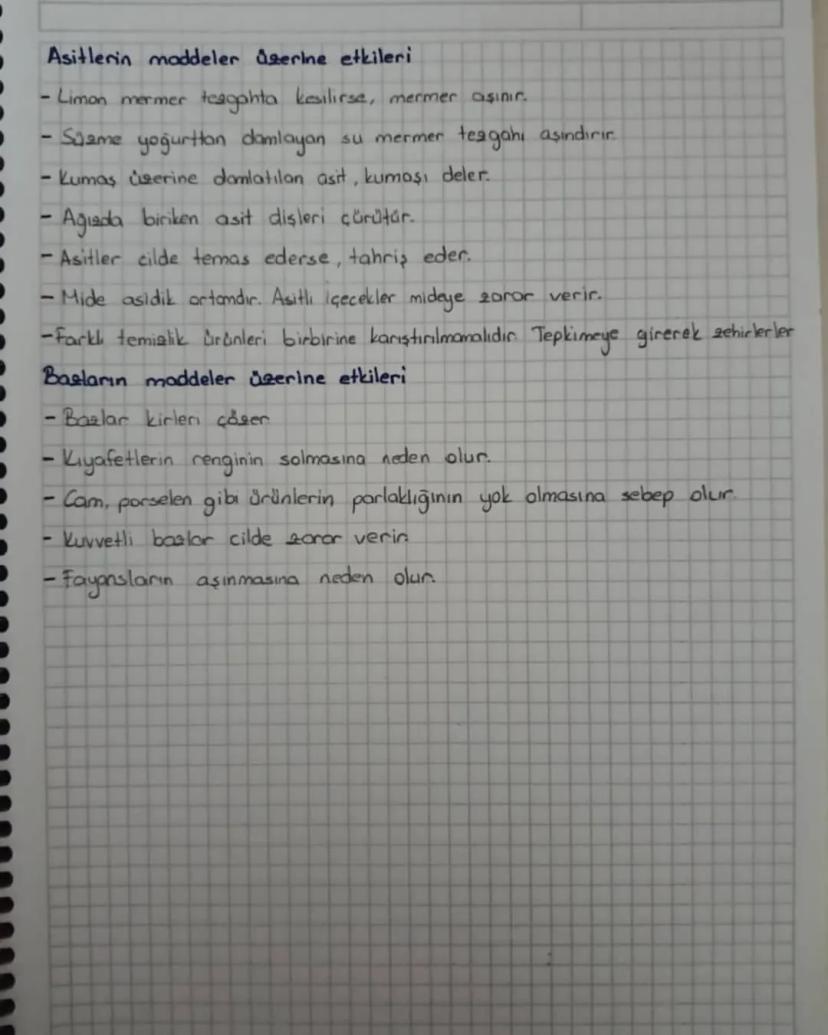 Asitlerin maddeler üzerine etkileri
- Limon mermer tezgahta kesilirse, mermer aşınır.
- Süzme yoğurttan damlayan su mermer tezgahı aşındırır
- Kumaş üzerine damlatılan asit, kumaşı deler.
- Ağızda biriken asit dişleri çürütür.
- Asitler cilde temas ederse, tahriş eder.
- Mide asidik ortamdır. Asitli içecekler mideye zarar verir.
- Farklı temizlik ürünleri birbirine karıştırılmamalıdır Tepkimeye girerek zehirlerler
Bazların maddeler üzerine etkileri
- Bazlar kirleri çözer
- Kıyafetlerin renginin solmasına neden olur.
- Cam, porselen gibi ürünlerin parlaklığının yok olmasına sebep olur.
- Kuvvetli bazlar cilde zarar verir
- Fayansların aşınmasına neden olur.